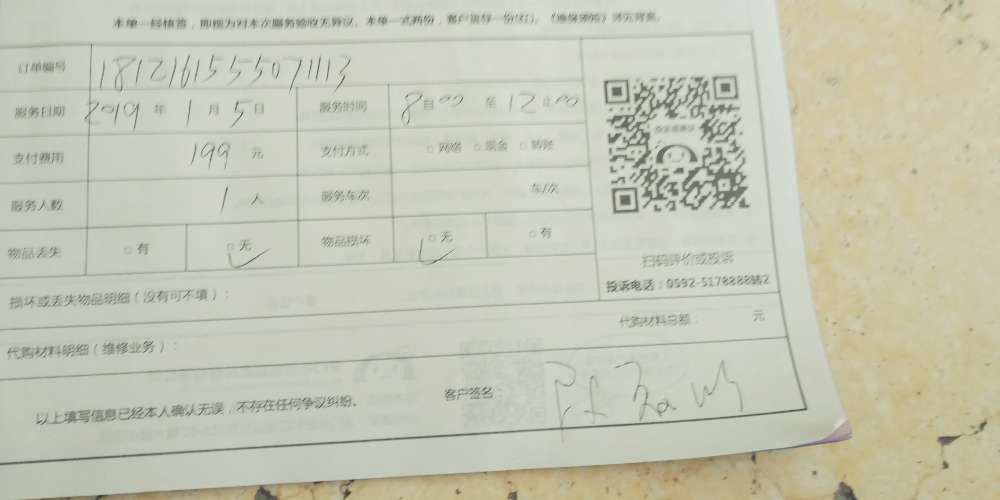 本单一经核签，即视为对本次服务验收无异议。本单一式两份，客户留存一份(红)。
订单编号 1812161555071113
服务日期 2019 年 1 月 5 日 服务时间 8 00 至 12 00
支付费用 199 元 支付方式 □ 网络 □ 现金 □ 转账
服务人数 1 人 服务车次 车/次
物品丢失 □ 有 □ 无 物品损坏 □ 无 □ 有
扫码评价或投诉
投诉电话：0592-5178888转2
损坏或丢失物品明细（没有可不填）：
代购材料明细（维修业务）： 代购材料总额： 元
以上填写信息已经本人确认无误，不存在任何争议纠纷。 客户签名：